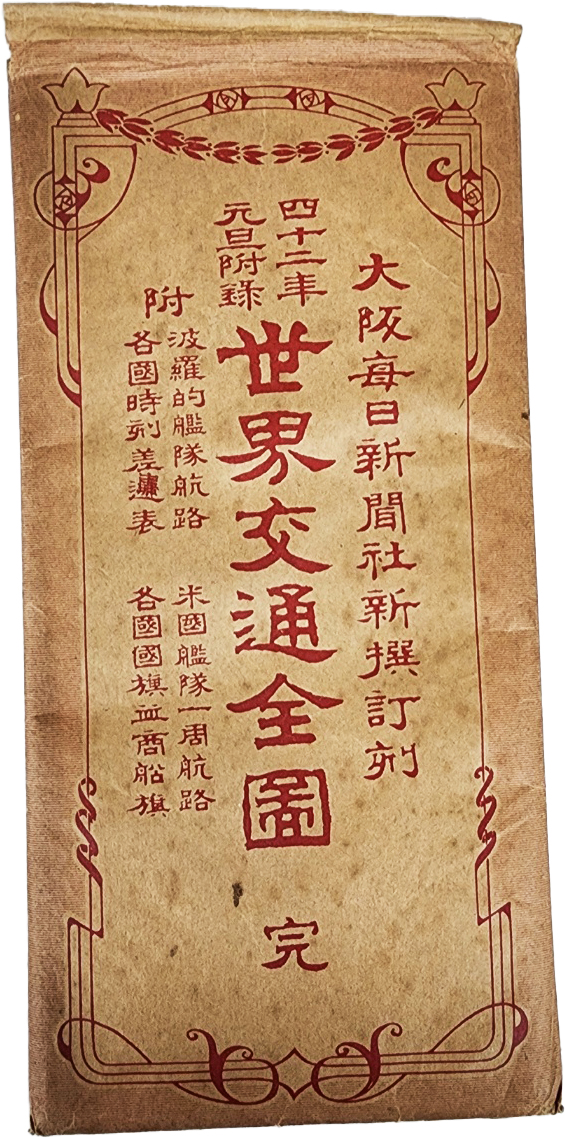 大阪每日新聞社新撰訂刻
四十二年
元旦附錄
世界交通全圖
完
附
波羅的艦隊航路
各國時刻差違表
米國艦隊一周航路
各國國旗並商船旗